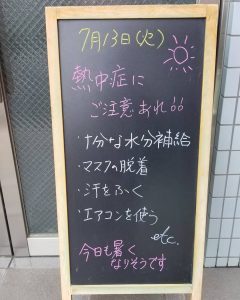 7月13日(火)
熱中症に
ご注意あれ!!
・十分な水分補給
・マスクの脱着
・汗をふく
・エアコンを使う
etc.
今日も暑く
なりそうです